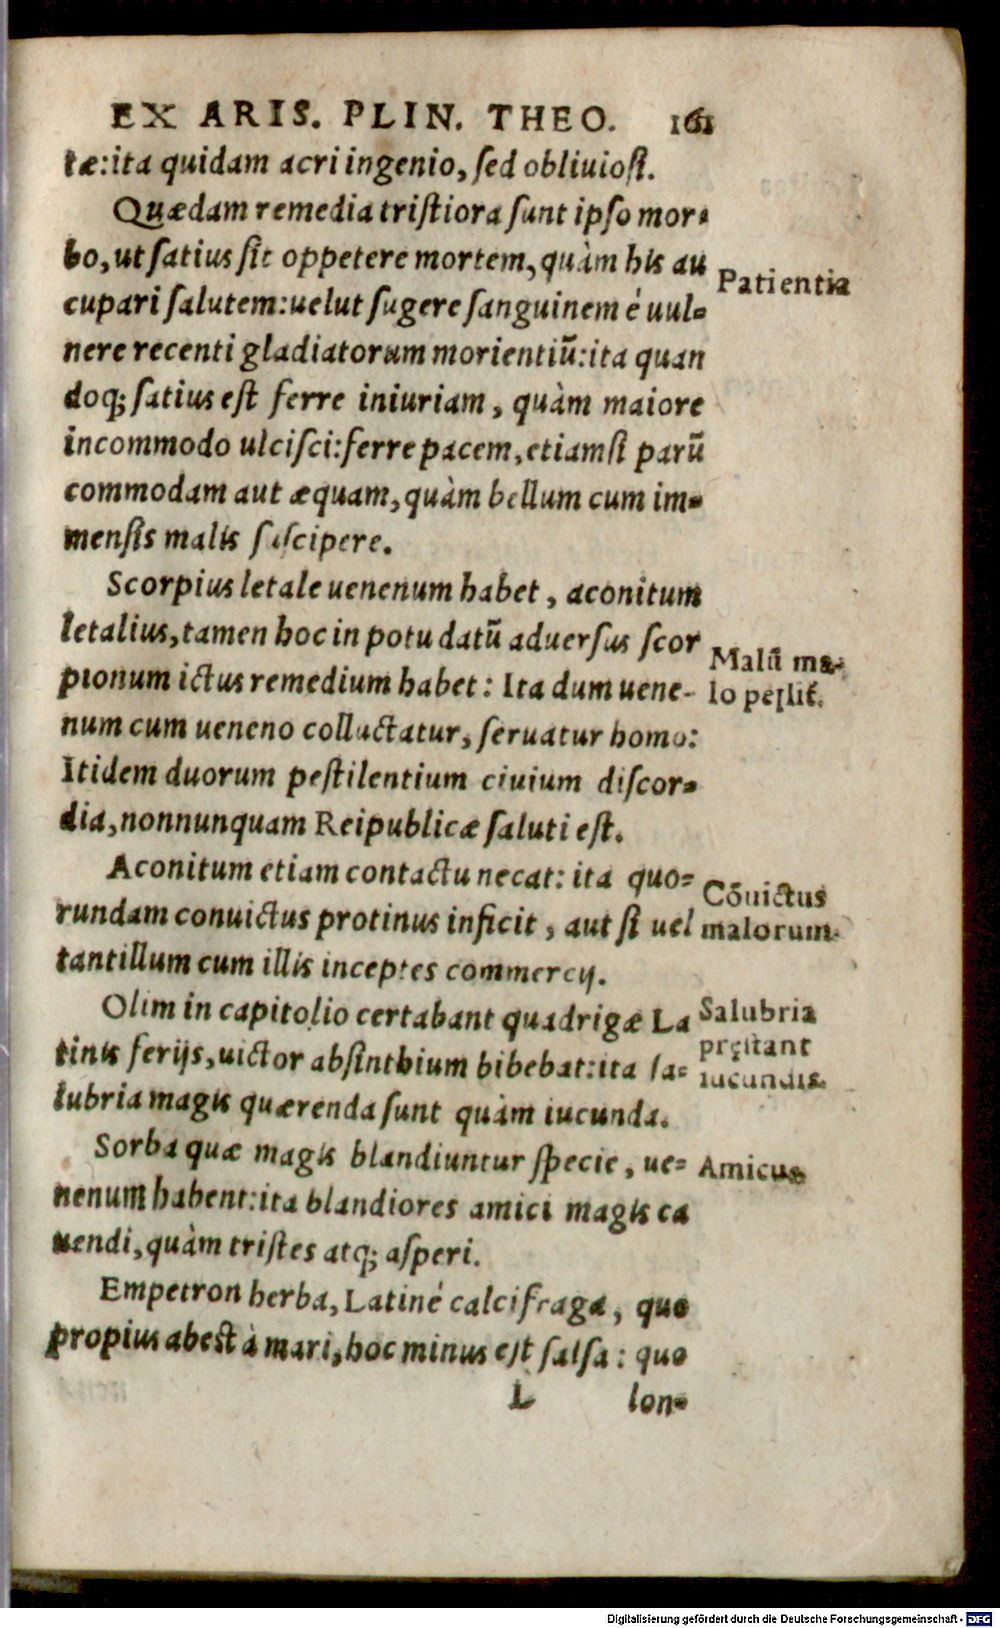 EX ARIS. PLIN. THEO. 161
tæ:ita quidam acri ingenio, ſed obliuioſi.
Quædam remedia triſtiora ſunt ipſo mor-
bo, ut ſatius ſit oppetere mortem, quàm his au
Patientia
cupari ſalutem: uelut ſugere ſanguinem é uul-
nere recenti gladiatorum morientiũ: ita quan
doq; ſatius eſt ferre iniuriam, quàm maiore
incommodo ulciſci: ferre pacem, etiamſi parũ
commodam aut æquam, quàm bellum cum im-
menſis malis ſuſcipere.
Scorpius letale uenenum habet, aconitum
letalius, tamen hoc in potu datũ aduerſus ſcor
Malũ ma-
pionum ictus remedium habet: Ita dum uene-
lo pellit.
num cum ueneno colluctatur, ſeruatur homo:
Itidem duorum peſtilentium ciuium diſcor-
dia, nonnunquam Reipublicæ ſaluti eſt.
Aconitum etiam contactu necat: ita quo-
Cõuictus
rundam conuictus protinus inficit, aut ſi uel
malorum.
tantillum cum illis inceptes commercij.
Olim in capitolio certabant quadrigæ La
Salubria
tinis ferijs, uictor abſinthium bibebat: ita ſa-
pręſtant
iucundis.
lubria magis quærenda ſunt quàm iucunda.
Sorba quæ magis blandiuntur ſpecie, ue-
Amicus
nenum habent: ita blandiores amici magis ca
uendi, quàm triſtes atq; aſperi.
Empetron herba, Latiné calcifraga, quo
propius abeſt à mari, hoc minus eſt ſalſa: quo
L lon-
Digitalisierung gefördert durch die Deutsche Forschungsgemeinschaft - DFG